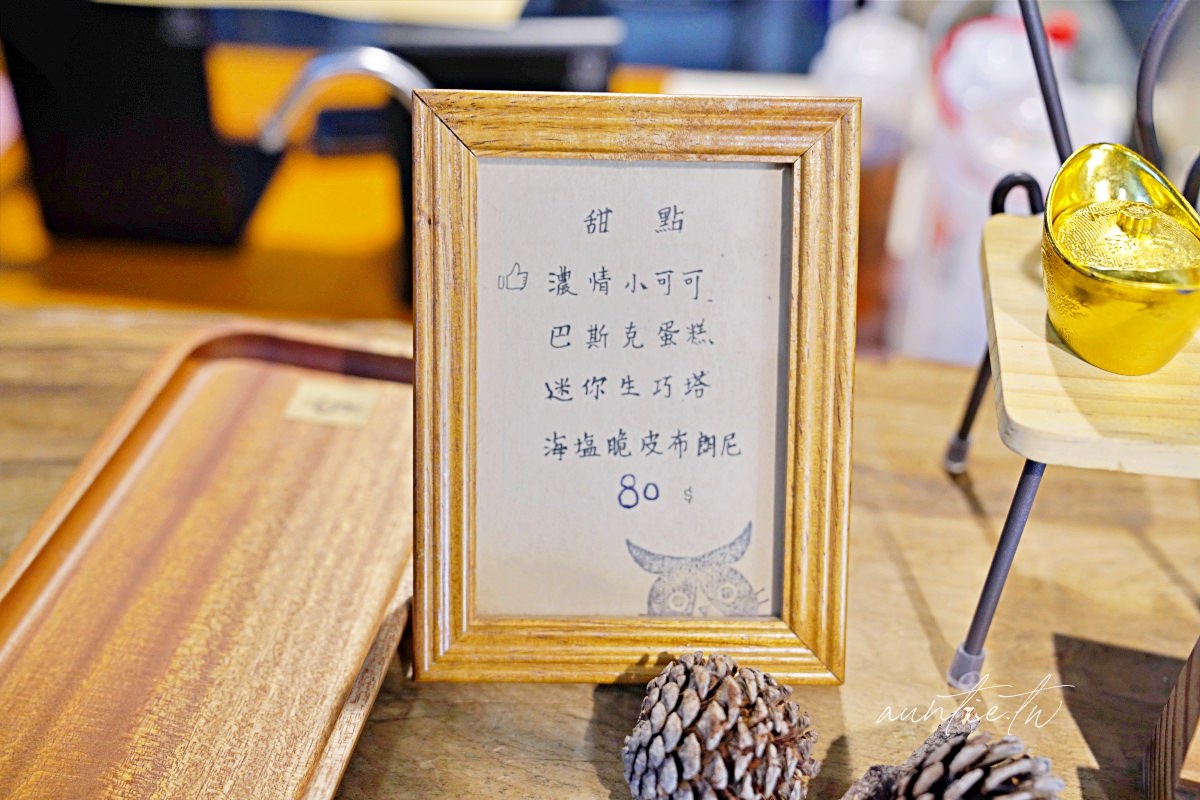 甜 點
濃情小可可
巴斯克蛋糕
迷你生巧塔
海塩脆皮布朗尼
80 $
auntie.tw